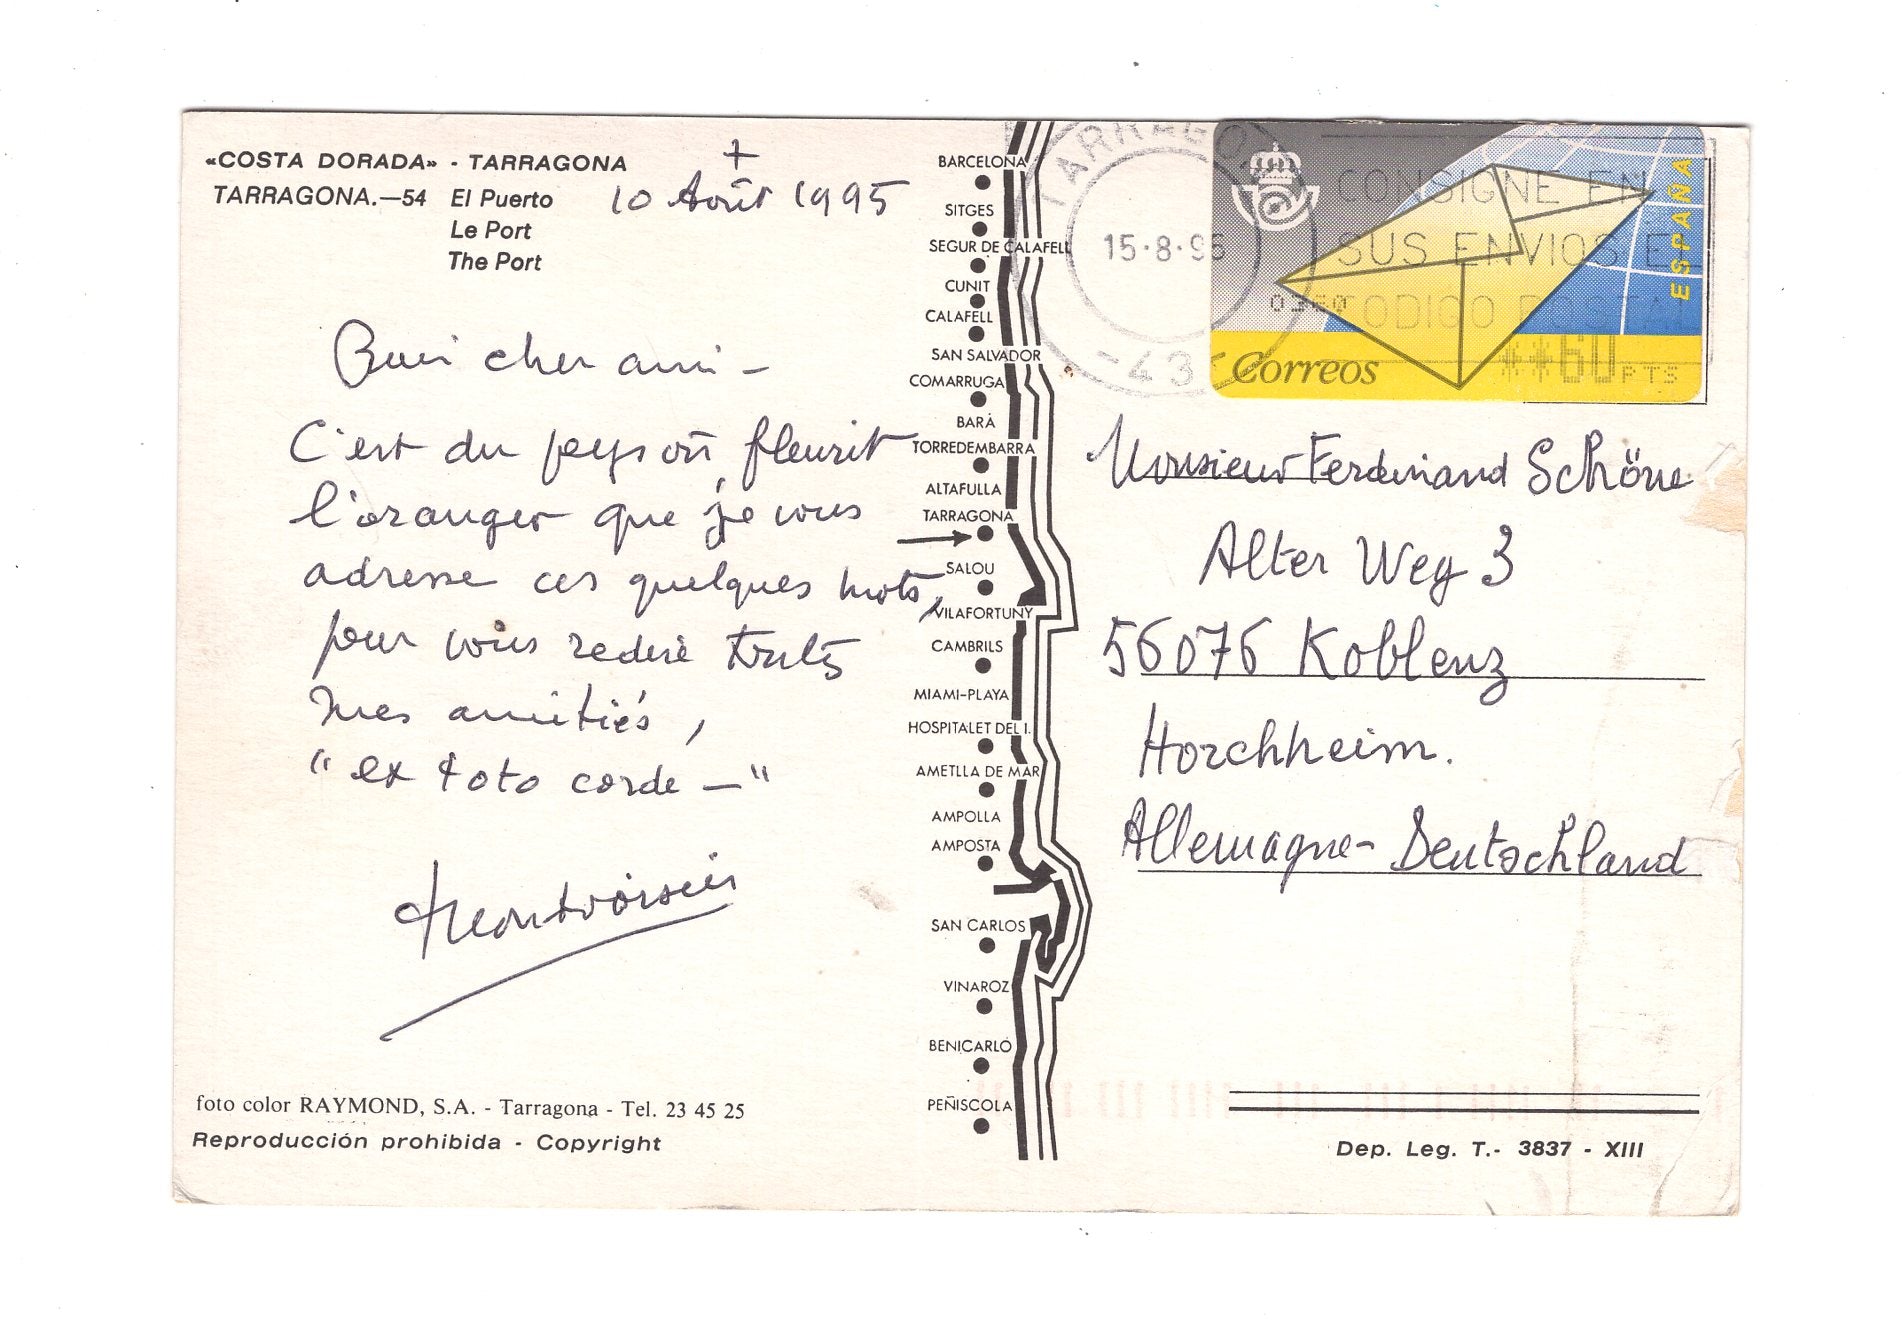 «COSTA DORADA» - TARRAGONA
TARRAGONA.—54 El Puerto
Le Port
The Port
+
10 Août 1995
Bien cher ami -
C'est du pays où fleurit
l'oranger que je vous
adresse ces quelques mots,
pour vous redire toutes
mes amitiés,
"ex toto corde -"
foto color RAYMOND, S.A. - Tarragona - Tel. 23 45 25
Reproducción prohibida - Copyright
BARCELONA
SITGES
SEGUR DE CALAFELL
CUNIT
CALAFELL
SAN SALVADOR
COMARRUGA
BARÁ
TORREDEMBARRA
ALTAFULLA
TARRAGONA
SALOU
VILAFORTUNY
CAMBRILS
MIAMI-PLAYA
HOSPITALET DEL I.
AMETLLA DE MAR
AMPOLLA
AMPOSTA
SAN CARLOS
VINAROZ
BENICARLÓ
PEÑISCOLA
TARRAGO
15·8·95
-43
CONSIGNE EN
SUS ENVIOS E
CODIGO POSTAL
ESPAÑA
Correos
**60 PTS
Monsieur Ferdinand Schöne
Alter Weg 3
56076 Koblenz
Horchheim.
Allemagne- Deutschland
Dep. Leg. T.- 3837 - XIII